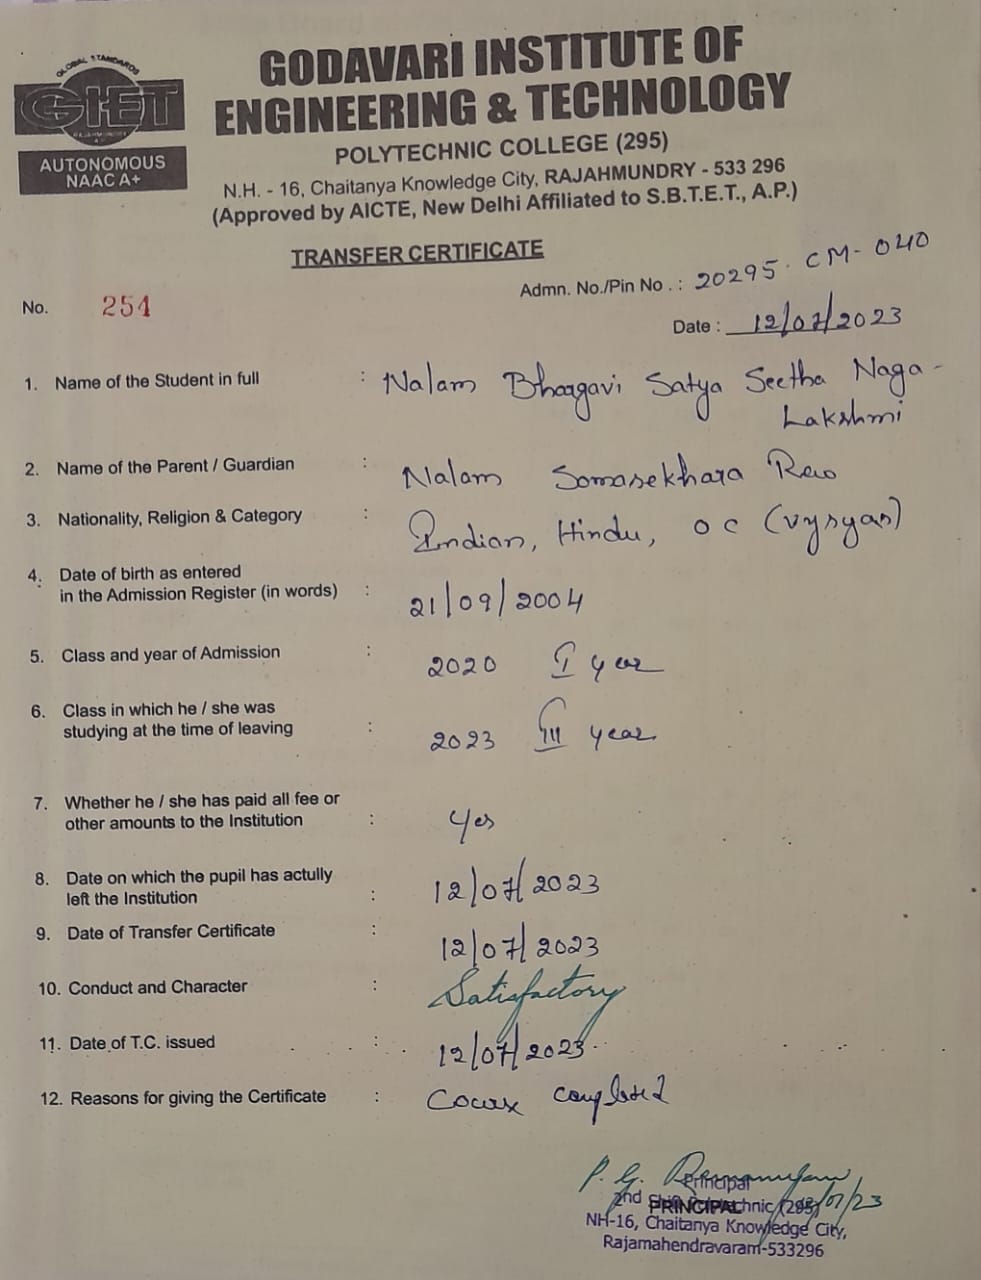 GLOBAL STANDARDS
GIET
RAJAHMUNDRY
AUTONOMOUS
NAAC A+
GODAVARI INSTITUTE OF
ENGINEERING & TECHNOLOGY
POLYTECHNIC COLLEGE (295)
N.H. - 16, Chaitanya Knowledge City, RAJAHMUNDRY - 533 296
(Approved by AICTE, New Delhi Affiliated to S.B.T.E.T., A.P.)
TRANSFER CERTIFICATE
Admn. No./Pin No . : 20295. CM- 040
No. 254
Date : 12/07/2023
1. Name of the Student in full : Nalam Bhargavi Satya Seetha Naga -
Lakshmi
2. Name of the Parent / Guardian : Nalam Somasekhara Rao
3. Nationality, Religion & Category : Indian, Hindu, OC (Vysyas)
4. Date of birth as entered
in the Admission Register (in words) : 21/09/2004
5. Class and year of Admission : 2020 I year
6. Class in which he / she was
studying at the time of leaving : 2023 III year
7. Whether he / she has paid all fee or
other amounts to the Institution : Yes
8. Date on which the pupil has actully
left the Institution : 12/07/2023
9. Date of Transfer Certificate : 12/07/2023
10. Conduct and Character : Satisfactory
11. Date of T.C. issued : 12/07/2023
12. Reasons for giving the Certificate : completed
P. G.
Principal
2nd
PRINCIPAL
NH-16, Chaitanya Knowledge City,
Rajamahendravaram-533296